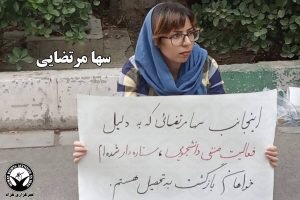 سها مرتضایی
اینجانب سها مرتضائی که به دلیل
فعالیت صنفی دانشجویی، ستاره دار شده ام
خواهان بازگشت به تحصیل هستم.
خبرگزاری هرانا